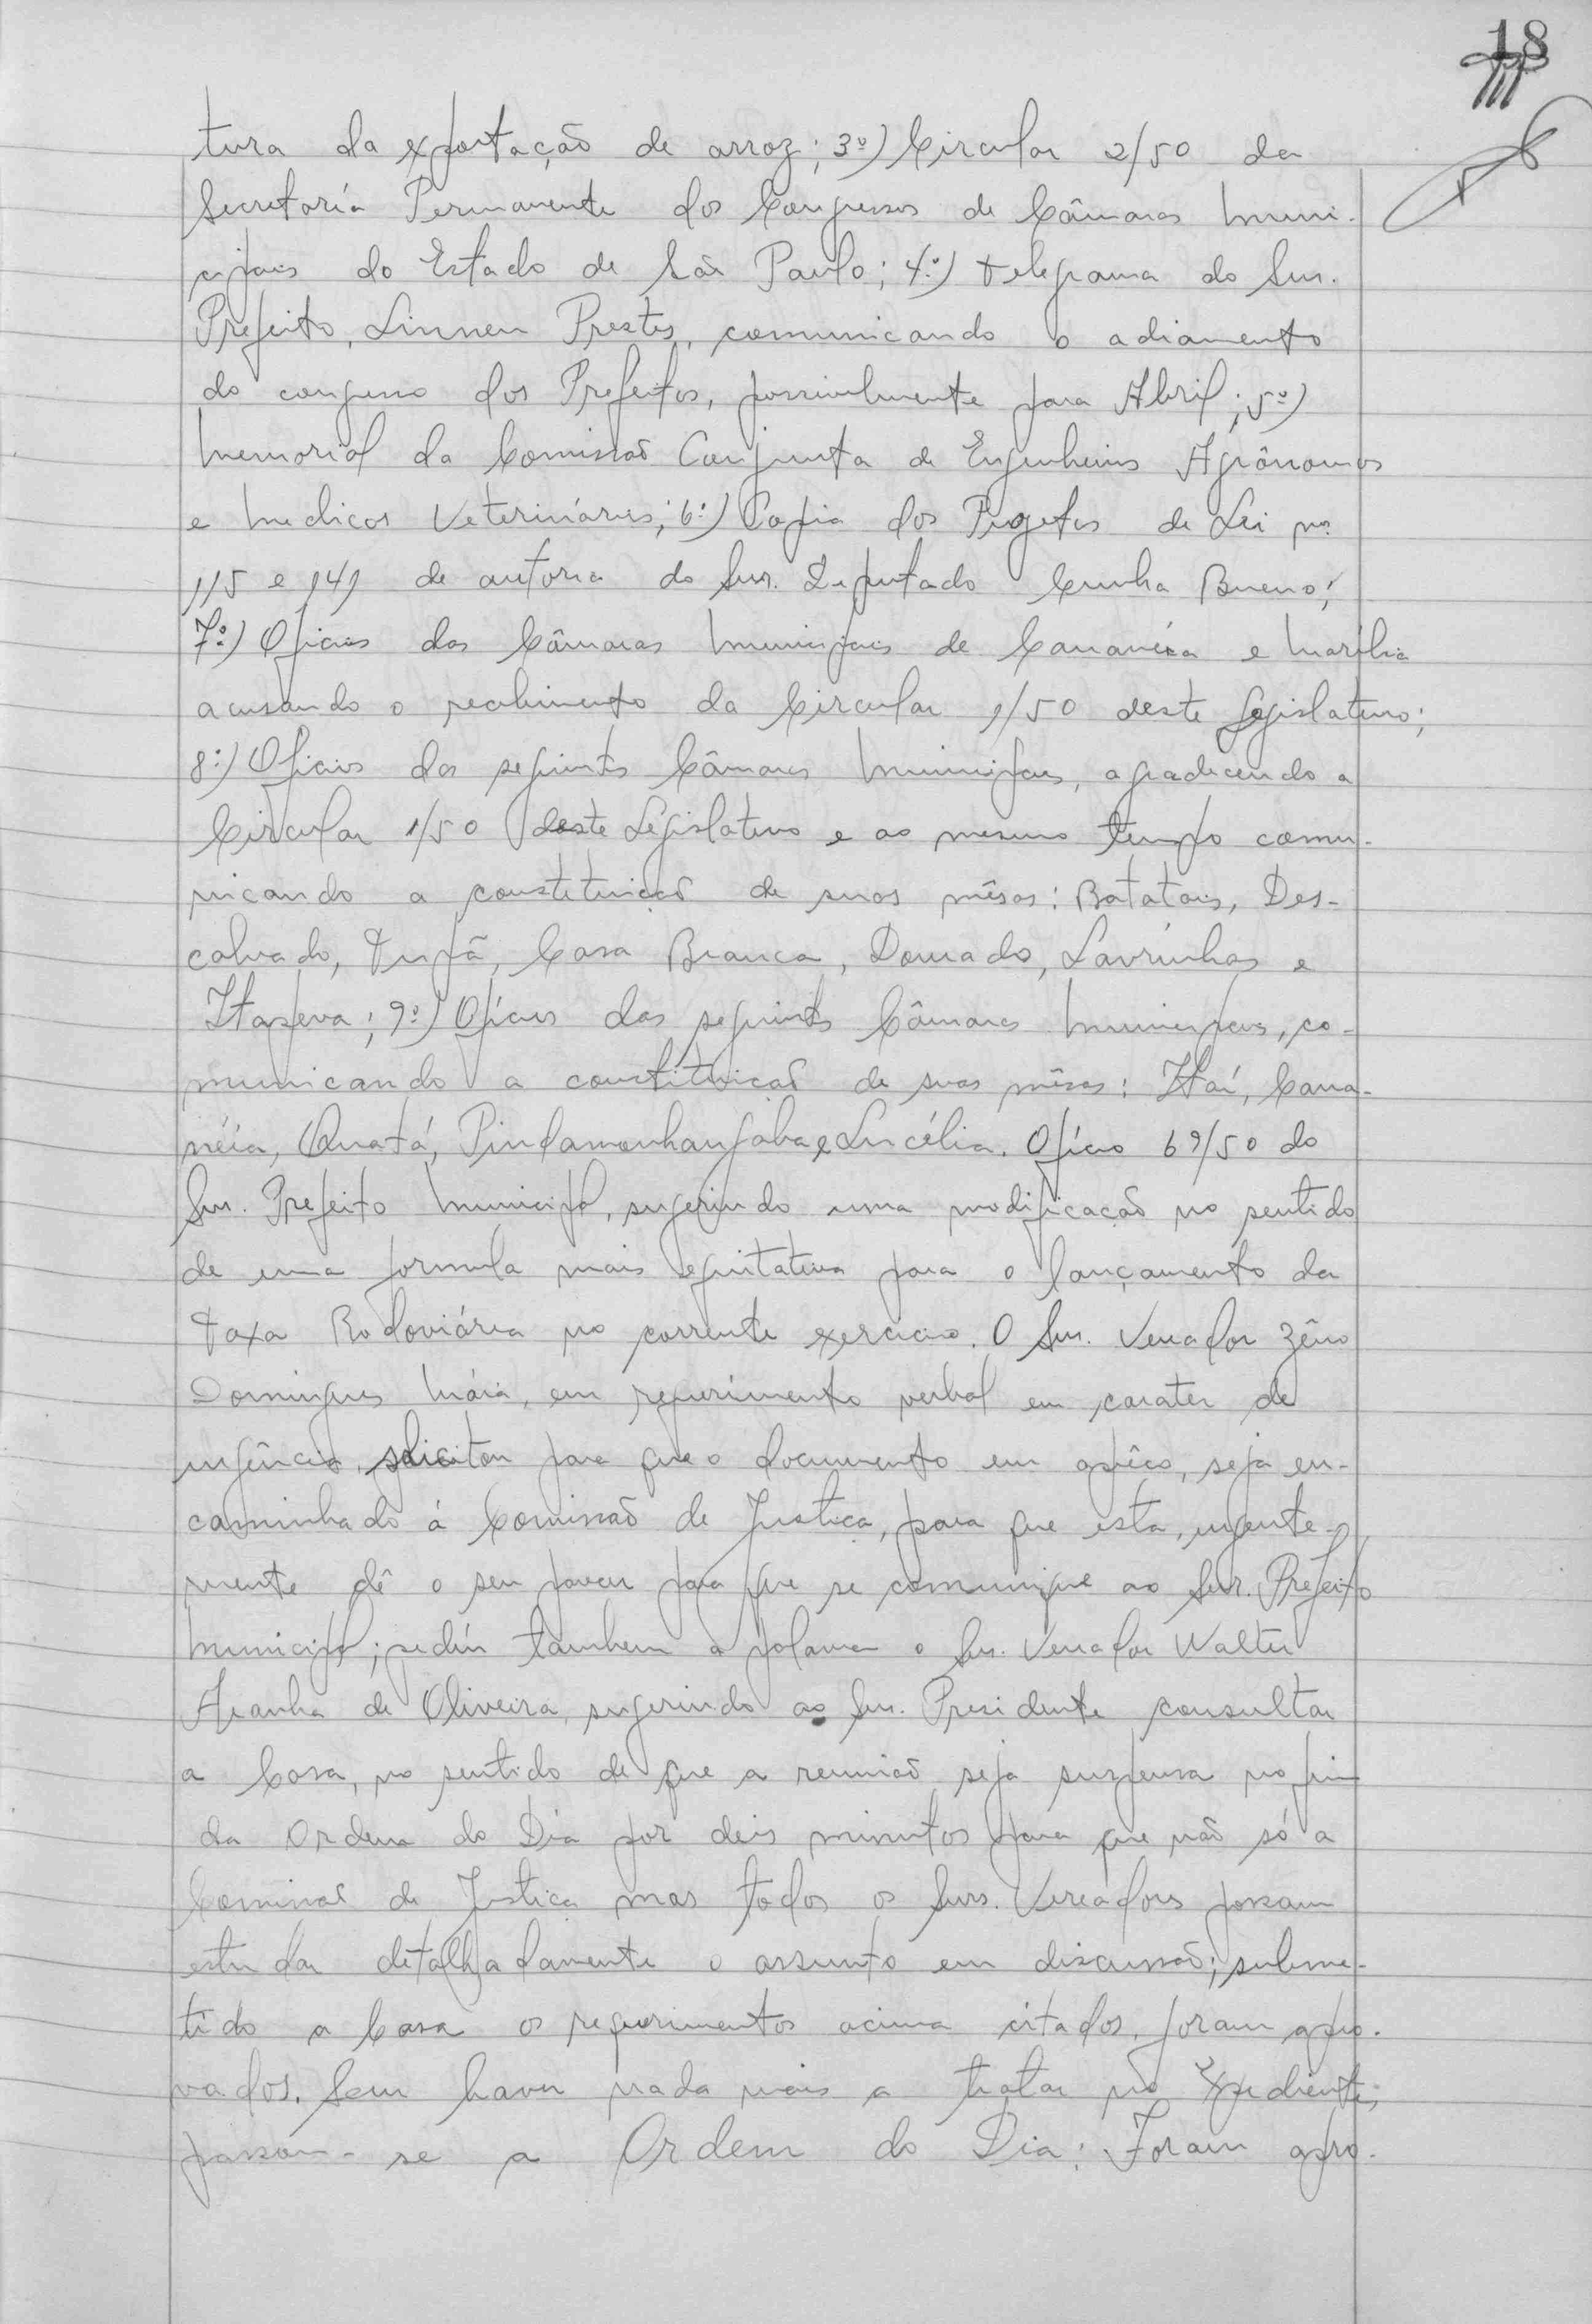 18
tura da exportação de arroz; 3º) Circular 2/50 da
Secretaría Permanente dos Congressos de Câmaras Muni-
cipais do Estado de São Paulo; 4º) telegrama do Snr.
Prefeito, Linneu Prestes, comunicando o adiamento
do congresso dos Prefeitos, possivelmente para Abril; 5º)
Memorial da Comissão Conjunta de Engenheiros Agrônomos
e Medicos Veterinários; 6º) Copia dos Projetos de Lei nº
115 e 141 de autoria do Snr. Deputado Cunha Bueno;
7º) Oficios das Câmaras Municipais de Cananéia e Marília
acusando o recebimento da Circular 1/50 deste Legislativo;
8º) Oficios das seguintes Câmaras Municipais, agradecendo a
Circular 1/50 deste Legislativo e ao mesmo tempo comu-
nicando a constetuição de suas mêsas: Batatais, Des-
calvado, Tupã, Casa Branca, Dourado, Lavrinhas e
Itapeva; 9º) Ofícios das seguintes Câmaras Municipais, co-
municando a constituição de suas mêsas: Itaí, Cana-
néia, Quatá, Pindamonhangaba e Lucélia. Ofício 69/50 do
Snr. Prefeito Municipal, sugerindo uma modificação no sentido
de uma formula mais equitativa para o lançamento da
Taxa Rodoviária no corrente exercicio. O Snr. Vereador Zêno
Domingues Máia, em requerimento verbal em carater de
urgência, solicitou para que o documento em apêço, seja en-
caminhado á Comissão de Justiça, para que esta, urgente-
mente dê o seu parecer para que se comunique ao Snr. Prefeito
Municipal; pediu tambem a palavra o Snr. Vereador Walter
Aranha de Oliveira, sugerindo ao Snr. Presidente consultar
a Casa, no sentido de que a reunião seja suspensa no fim
da Ordem do Dia por deis minutos para que não só a
Comissão de Justiça mas todos os Snrs. Vereadores possam
estudar detalhadamente o assunto em discussão; subme-
tido a Casa os requerimentos acima citados, foram apro-
vados. Sem haver nada mais a tratar no Expediente,
passou-se a Ordem do Dia: Foram apro-